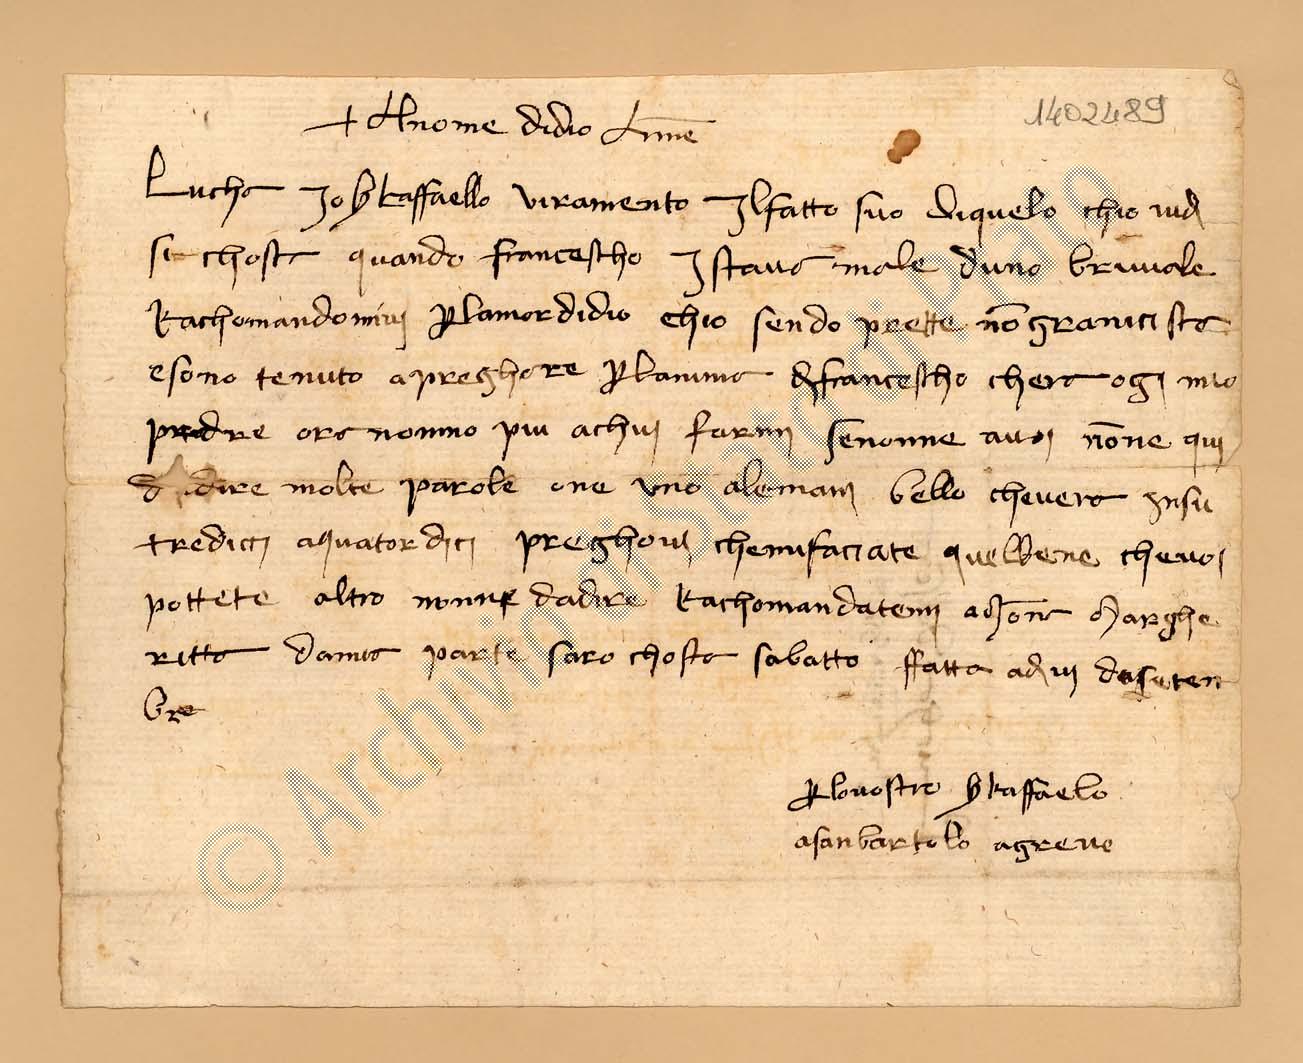 1402489
+ Al nome di dio Amē
Lucha Jo s̄ Raffaello viramento Jl fatto suo di quelo chio vi di
si chosta quando francescho Jstava male duno brivale
Rachomandomivi p̱ lamor didio chio sendo prette nō graviciste
e sono tenuto a preghare p̱ lanima di francescho chera ogi mio
padre ora nonno piu a chui farmi se nonne a voi nōne qui
da dire molte parole one uno alemani bello chevera Jnsu
tredicci a quatordici preghovi chemifaciate quelbene chevoj
pottete altro nonne dadire Rachomandatemi a Mōna Marghe
ritta damia parte saro chosta sabatto ffatta adi vj di setten
bre
p̱ lo vostro s̄ Raffaelo
a san bartolo a greve
© Archivio di Stato di Prato